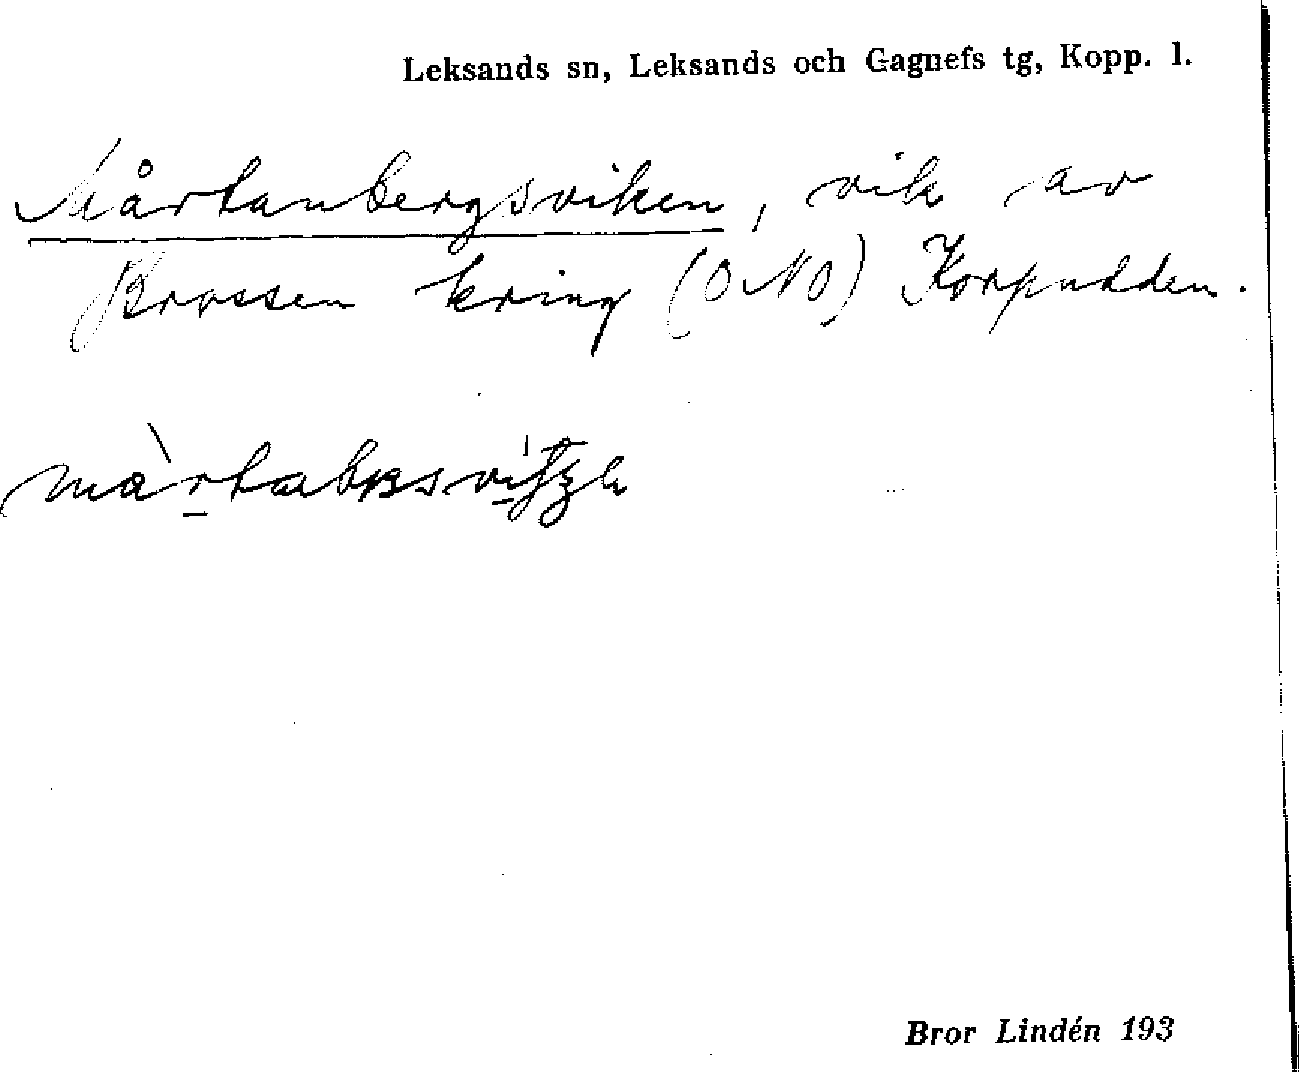 Leksands sn, Leksands och Gagnefs tg, Kopp. l.
Mårtanbergsviken, vik av
Brossen kring (O NO) Korpudden.
Bror Lindén 193